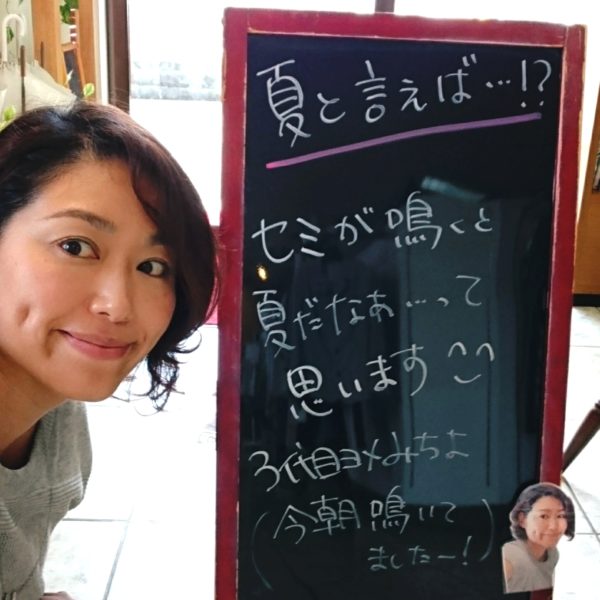 夏と言えば…!?
セミが鳴くと
夏だなぁ…って
思います^^
3代目ヨメみちよ
(今朝鳴いて
ましたー!)